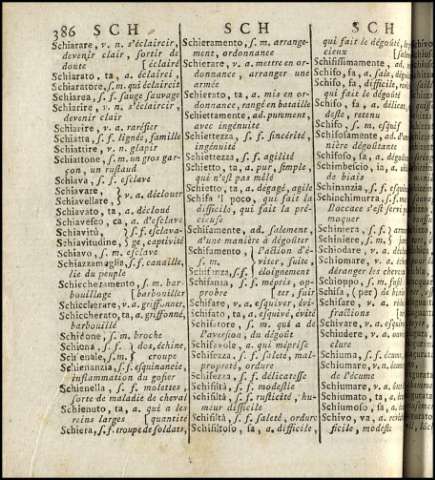 386 SCH
SCH
SCH
Schiarare, v. n. s'éclaircir,
devenir clair, sortir de
doute [éclairé
Schiarato, ta, a. éclairci,
Schiaratore, s. m. qui éclaircit
Schiarea, s. f. sauge sauvage
Schiarire, v. n. s'éclaircir,
devenir clair
Schiarire, v. a. raréfier
Schiatta, s. f. lignée, famille
Schiattire, v. n. glapir
Schiattone, s. m. un gros gar-
çon, un rustaud
Schiava, s. f. esclave
Schiavare,
Schiavellare, } v. a. déclouer
Schiavato, ta, a. décloué
Schiavesco, ca, a. d'esclave
Schiavitù, } s. f. esclava-
Schiavitudine, } ge, captivité
Schiavo, s. m. esclave
Schiazzamaglia, s. f. canaille,
lie du peuple
Schiccheramento, s. m. bar-
bouillage [barbouiller
Schiccherare, v. a. griffonner,
Schiccherato, ta, a. griffonné,
barbouillé
Schidone, s. m. broche
Schiena, s. f. } dos, échine,
Schienale, s. m. } croupe
Schienanzia, s. f. esquinancie,
inflammation du gosier
Schienella, s. f. molettes,
sorte de maladie de cheval
Schienuto, ta, a. qui a les
reins larges [quantité
Schiera, s. f. troupe de soldats,
Schieramento, s. m. arrange-
ment, ordonnance
Schierare, v. a. mettre en or-
donnance, arranger une
armée
Schierato, ta, a. mis en or-
donnance, rangé en bataille
Schiettamente, ad. purement,
avec ingénuité
Schiettezza, s. f. sincérité,
ingénuité
Schiettezza, s. f. agilité
Schietto, ta, a. pur, simple,
qui n'est pas mêlé
Schietto, ta, a. dégagé, agile
Schifa 'l poco, qui fait la
difficile, qui fait la pré-
cieuse
Schifamente, ad. salement,
d'une manière à dégoûter
Schifamento, } l'action d'é-
s. m. } viter, fuite,
Schifanza, s. f. } éloignement
Schifanza, s. f. mépris, op-
probre [ter, fuir
Schifare, v. a. esquiver, évi-
Schifato, ta, a. esquivé, évité
Schifatore, s. m. qui a de
l'aversion, du dégoût
Schifevole, a. qui méprise
Schifezza, s. f. saleté, mal-
propreté, ordure
Schifezza, s. f. délicatesse
Schifiltà, s. f. modestie
Schifiltà, s. f. rusticité, hu-
meur difficile
Schifiltà, s. f. saleté, ordure
Schifiltoso, sa, a. difficile,
qui fait le dégoûté,
cieux
Schifissimamente, ad.
Schifo, fa, a. sale, dégo
Schifo, fa, a. difficile, roi
qui fait le dégoûté
Schifo, fa, a. délicat,
deste, retenu
Schifo, s. m. esquif
Schifosamente, ad. d'un
nière dégoûtante
Schifoso, sa, a. dégoû
Schimbescio, ia, a.
de biais
Schinanzia, s. f. esquina
Schinchimurra, s. f.
Boccace s'est servi
moquer
Schiniera, s. f.
Schiniere, s. m.
Schiodare, v. a. déclou
Schiomare, v. a.
déranger les cheveux
Schioppo, s. m. fusil
Schisa (per) de
Schisare, v. a. réduire
fractions
Schivare, v. a. esquiver
Schiudere, v. a. ouvrir
clure
Schiuma, s. f. écume,
Schiumare, v. a. écumer
de l'écume
Schiumato, ta, a. écumé
Schiumoso, sa, a.
Schivo, va, a.
ficile, modeste